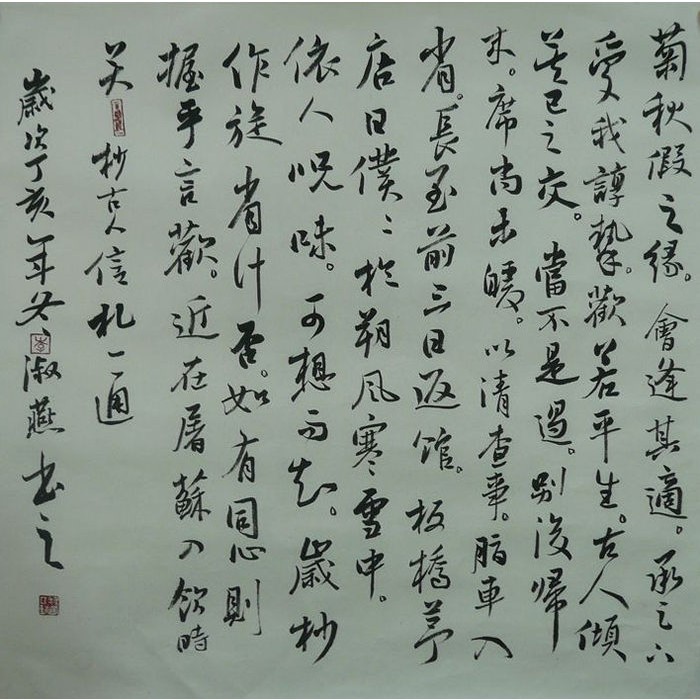 菊秋假之緣。會逢其適。承足下
受我諄摯。歡若平生。古人傾
蓋已之交。當不是過。別後歸
来。席尚未暖。以清查事。脂車入
省。長至前三日返館。板橋茅
店日僕〻於朔風寒雪中。
依人呪味。可想而知。歲杪
作旋省计否。如有同心則
握手言歡。近在屠蘇入飲時
矣 抄古人信札一通
歲次丁亥年冬 李 淑燕书之